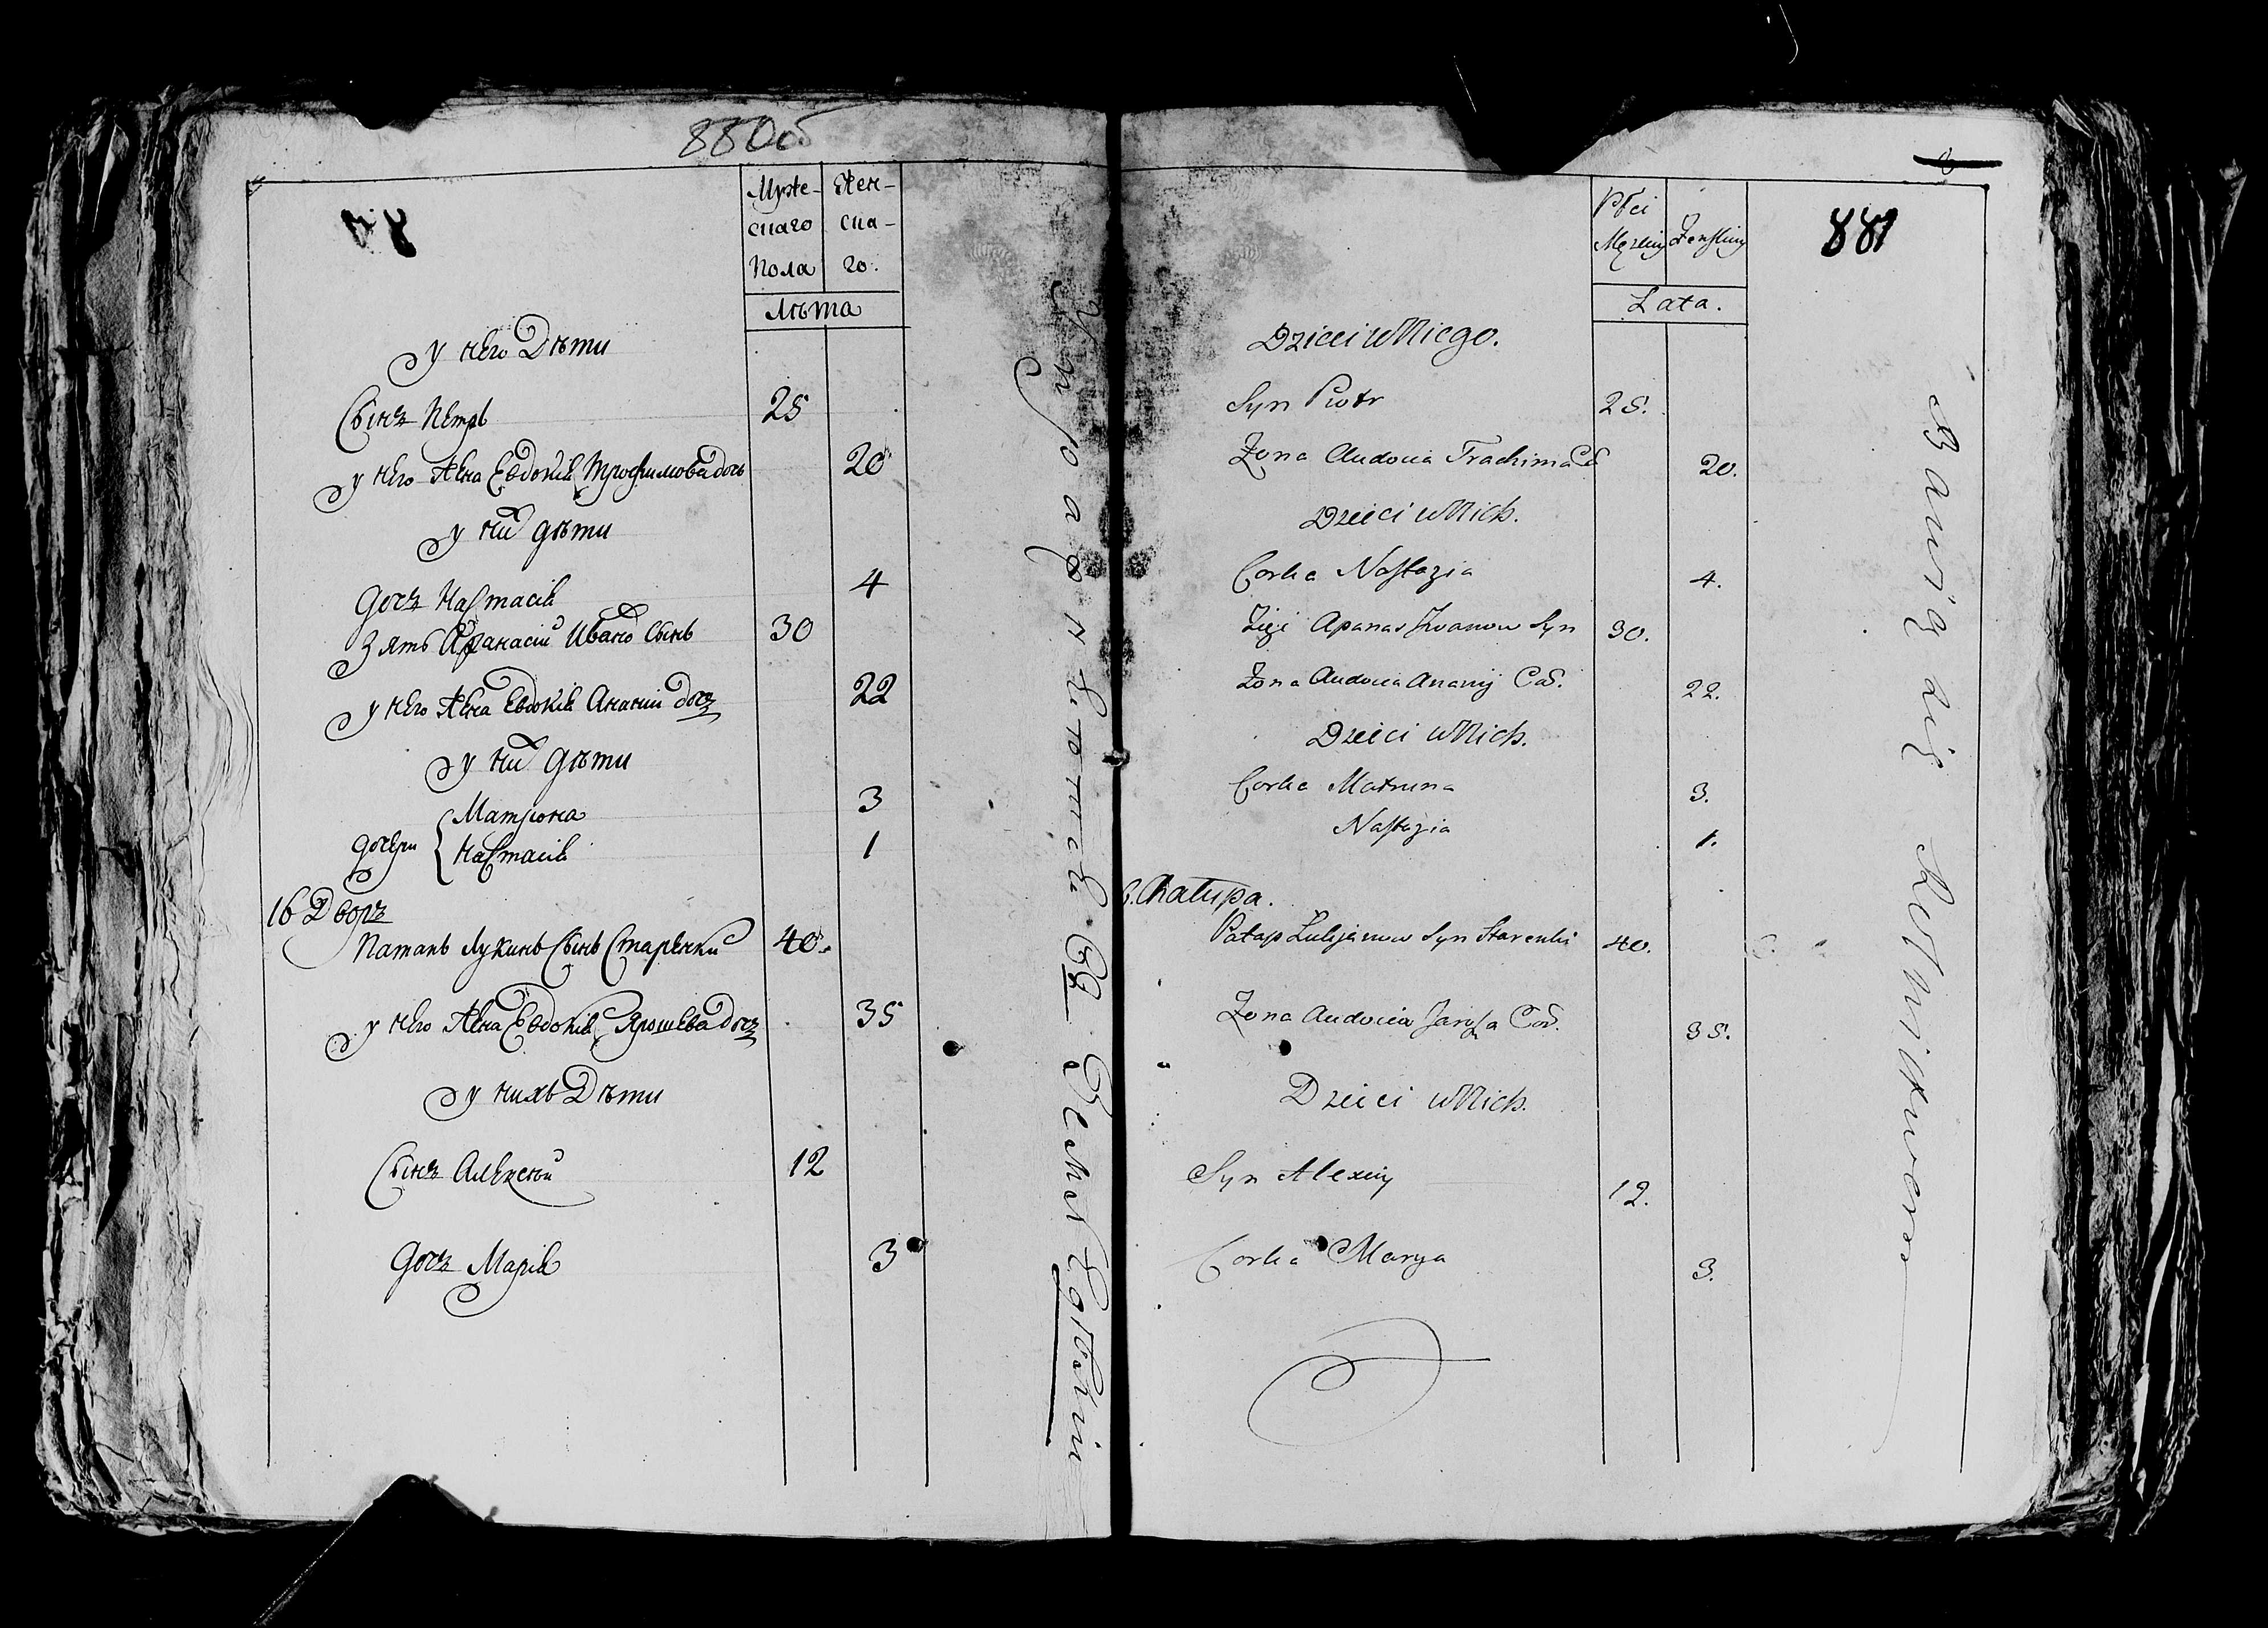 880об
Муже- Жен-
скаго ска-
Пола го.
Лѣта
у него Дѣти
Сынъ Петръ 25
у него Жена Евдокія Трофимова дочь 20
у них дѣти
дочъ Настасія 4
Зять Афанасій Иванов Сынъ 30
у него Жена Евдокія Ананіи дочъ 22
у них дѣти
дочери { Матрона 3
Настасія 1
16 Дворъ
Патапъ Лукинъ Сынъ Старенкий 40.
у него Жена Евдокія Ярошева дочъ 35
у нихъ Дѣти
Сынъ Алексѣй 12
дочъ Марія 3
881
Płci
Męzkiey Zenskiey
Lata.
Dzieci u Niego.
Syn Piotr 25.
Zona Audocia Trachima Có 20.
Dzieci u Nich.
Corka Nastazia 4.
Zięć Apanas Iwanow Syn 30.
Zona Audocia Ananij Cór. 22.
Dzieci u Nich.
Corka Matruna 3.
Nastazia 1.
Chałupa.
Patap Lukjanow Syn Starenki 40.
Zona Audocia Jarosza Cór. 35.
Dzieci u Nich.
Syn Alexiy 12.
Corka Marya 3.